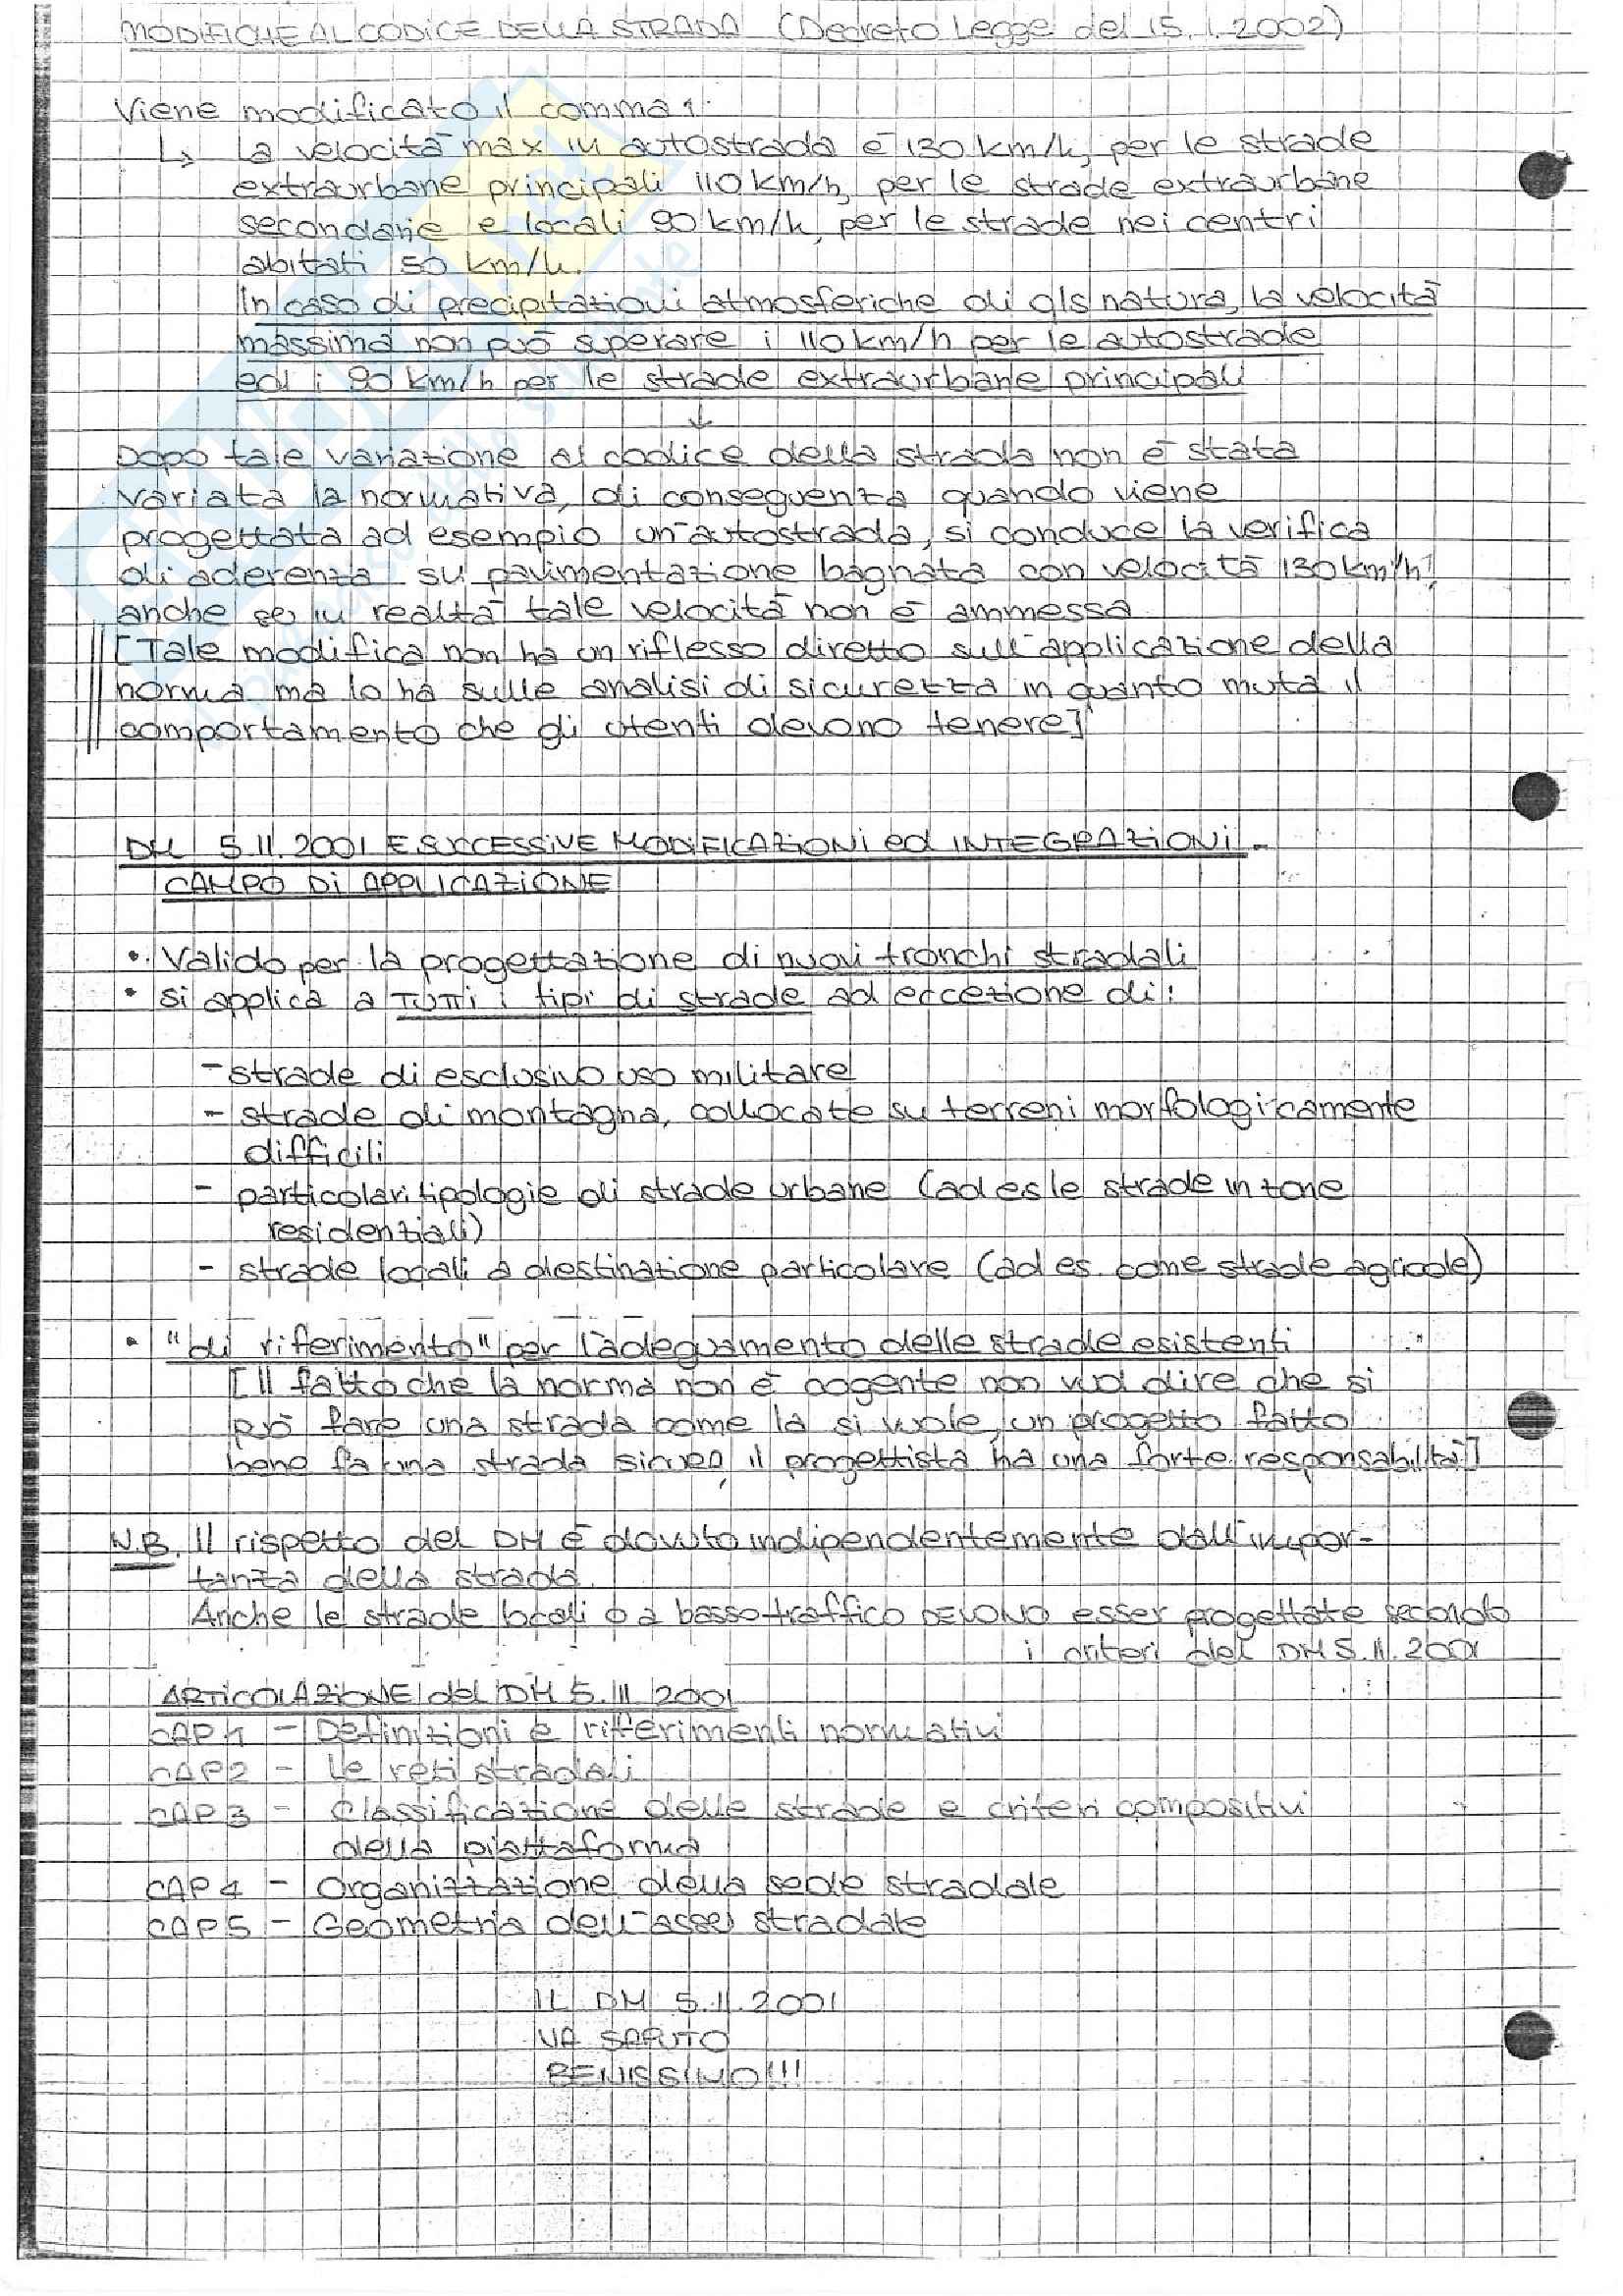 MODIFICHE AL CODICE DELLA STRADA (Decreto Legge del 15.1.2002)
Viene modificato il comma 1:
↳ La velocità max in autostrada è 130 km/h, per le strade
extraurbane principali 110 km/h, per le strade extraurbane
secondarie e locali 90 km/h, per le strade nei centri
abitati 50 km/h.
In caso di precipitazioni atmosferiche di qls natura, la velocità
massima non può superare i 110 km/h per le autostrade
ed i 90 km/h per le strade extraurbane principali
↓
Dopo tale variazione al codice della strada non è stata
variata la normativa, di conseguenza quando viene
progettata ad esempio un'autostrada, si conduce la verifica
di aderenza su pavimentazione bagnata con velocità 130 km/h!
anche se in realtà tale velocità non è ammessa
[Tale modifica non ha un riflesso diretto sull'applicazione della
norma ma lo ha sulle analisi di sicurezza in quanto muta il
comportamento che gli utenti devono tenere]
DM 5.11.2001 E SUCCESSIVE MODIFICAZIONI ed INTEGRAZIONI -
CAMPO DI APPLICAZIONE
• Valido per la progettazione di nuovi tronchi stradali
• si applica a TUTTI i tipi di strade ad eccezione di:
- strade di esclusivo uso militare
- strade di montagna, collocate su terreni morfologicamente
difficili
- particolari tipologie di strade urbane (ad es le strade in zone
residenziali)
- strade locali a destinazione particolare (ad es. come strade agricole)
• "di riferimento" per l'adeguamento delle strade esistenti
[Il fatto che la norma non è cogente non vuol dire che si
può fare una strada come la si vuole, un progetto fatto
bene fa una strada sicura, il progettista ha una forte responsabilità]
N.B. Il rispetto del DM è dovuto indipendentemente dall'impor-
tanza della strada.
Anche le strade locali o a basso traffico DEVONO esser progettate secondo
i criteri del DM 5.11.2001
ARTICOLAZIONE del DM 5.11.2001
CAP 1 - Definizioni e riferimenti normativi
CAP 2 - Le reti stradali
CAP 3 - Classificazione delle strade e criteri compositivi
della piattaforma
CAP 4 - Organizzazione della sede stradale
CAP 5 - Geometria dell'asse stradale
IL DM 5.11.2001
VA SAPUTO
BENISSIMO!!!